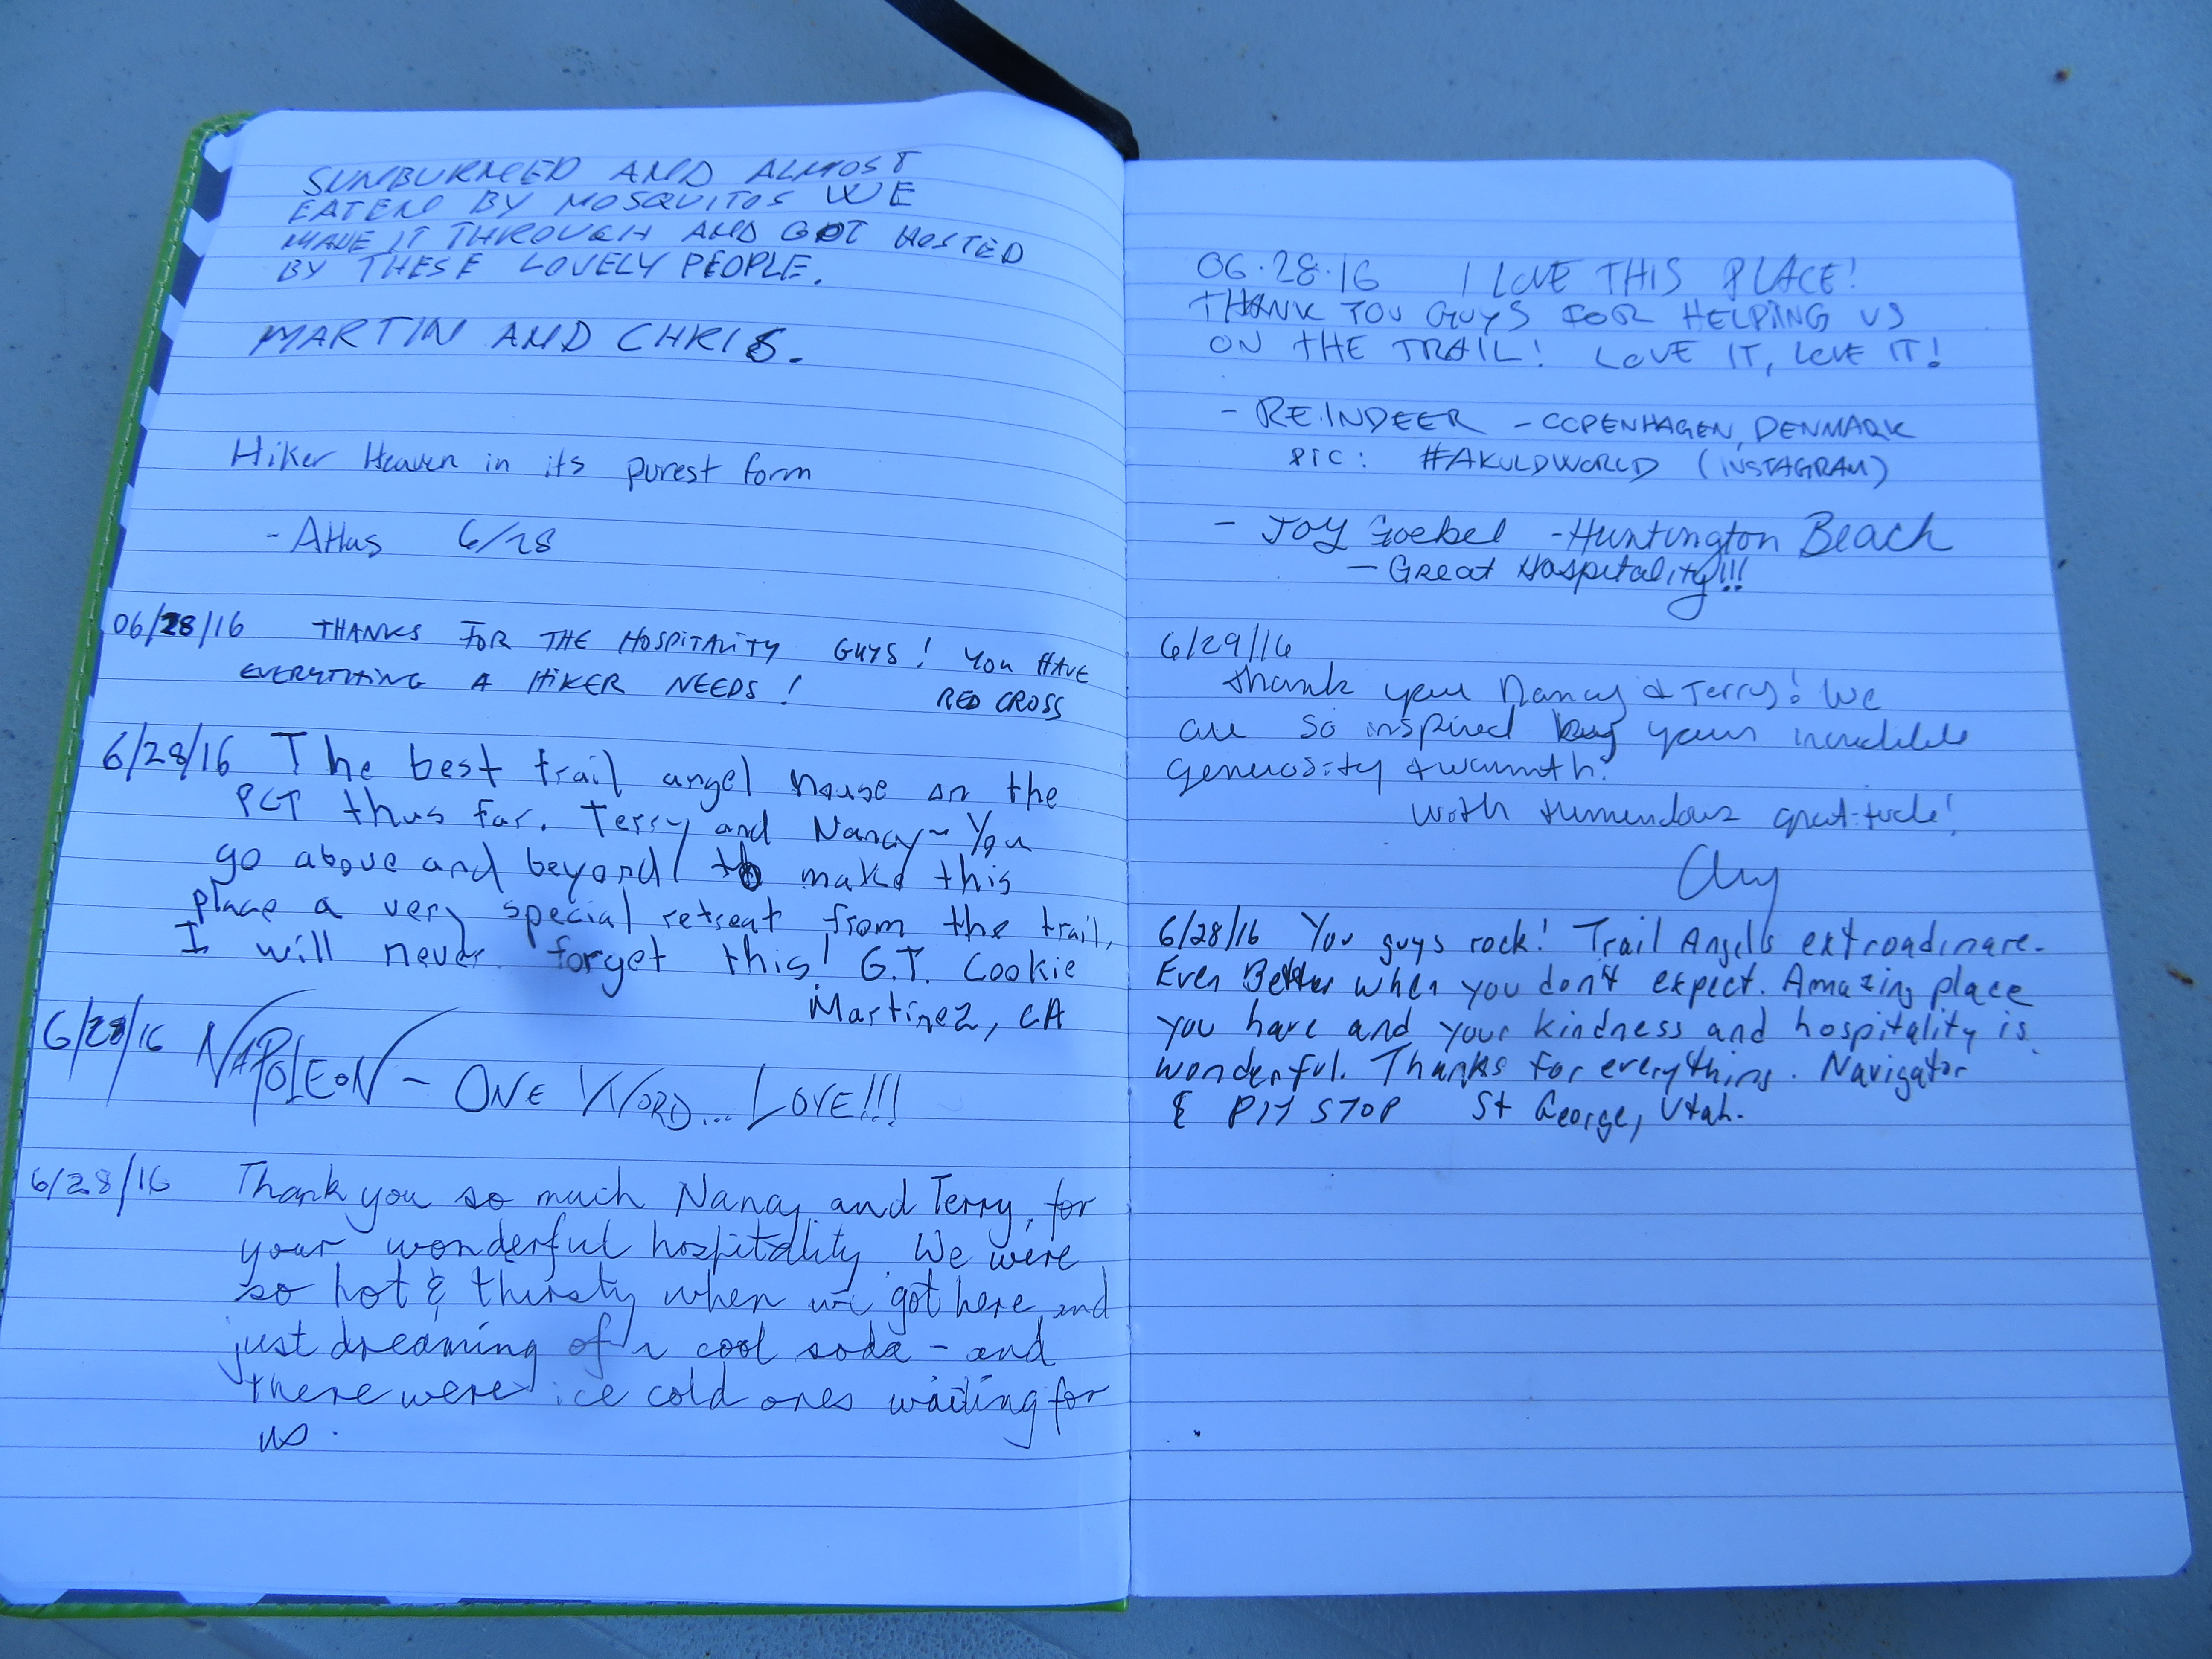 SUNBURNED AND ALMOST
EATEN BY MOSQUITOS WE
MADE IT THROUGH AND GOT HOSTED
BY THESE LOVELY PEOPLE.
MARTIN AND CHRIS.
Hiker Heaven in its purest form
- Atlas 6/28
06/28/16 THANKS FOR THE HOSPITALITY GUYS! YOU HAVE
EVERYTHING A HIKER NEEDS!
RED CROSS
6/28/16 The best trail angel house on the
PCT thus far. Terry and Nancy~ You
go above and beyond to make this
place a very special retreat from the trail,
I will never forget this! G.T. Cookie
Martinez, CA
6/28/16 NAPOLEON - ONE WORD... LOVE!!!
6/28/16 Thank you so much Nancy and Terry, for
your wonderful hospitality. We were
so hot & thirsty when we got here, and
just dreaming of a cool soda - and
there were ice cold ones waiting for
us.
06.28.16 I LOVE THIS PLACE!
THANK YOU GUYS FOR HELPING US
ON THE TRAIL! LOVE IT, LOVE IT!
- REINDEER - COPENHAGEN, DENMARK
PIC: #AKULDWORLD (INSTAGRAM)
- JOY Goebel - Huntington Beach
- Great Hospitality!!!
6/29/16
Thank you Nancy & Terry! We
are so inspired by your incredible
generosity & warmth!
With tremendous gratitude!
6/28/16 You guys rock! Trail Angells extroadinare.
Even Better when you don't expect. Amazing place
you have and your kindness and hospitality is
wonderful. Thanks for everything. Navigator
& PIT STOP St George, Utah.